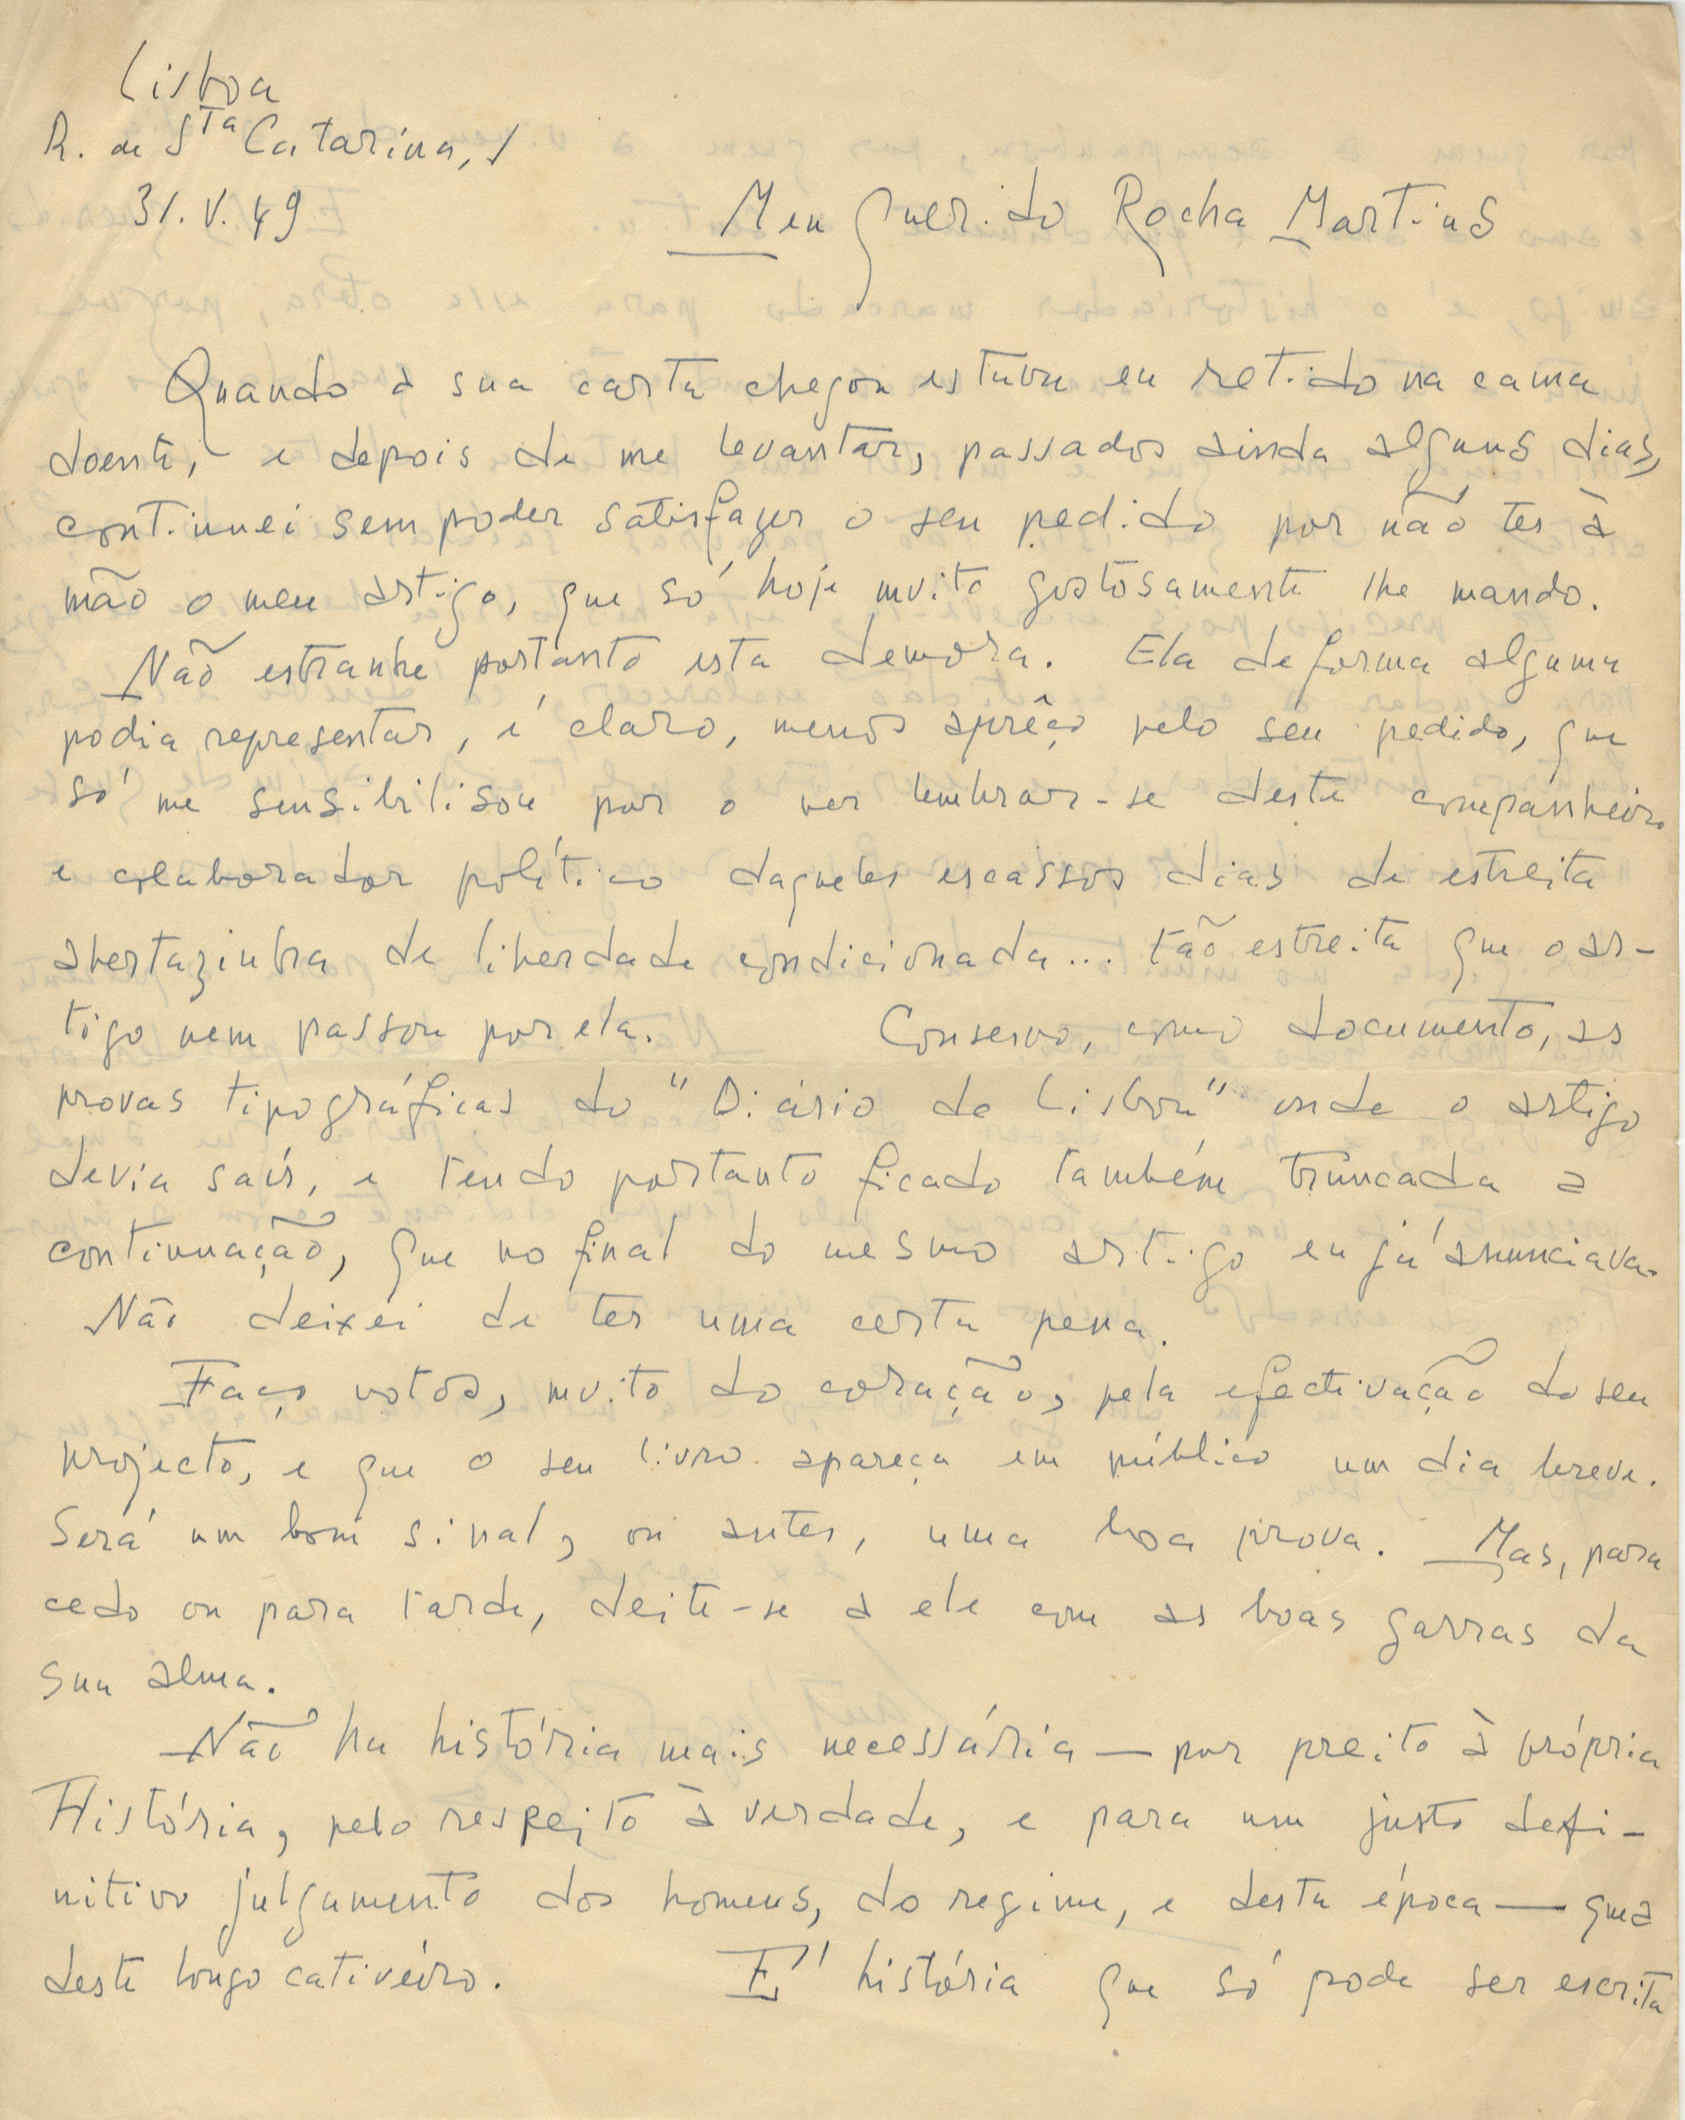 Lisboa
R. de Sta Catarina, 1
31.V.49
Meu querido Rocha Martins
Quando a sua carta chegou estava eu retido na cama
doente, e depois de me levantar, passados ainda alguns dias,
continuei sem poder satisfazer o seu pedido por não ter à
mão o meu artigo, que só hoje muito gostosamente lhe mando.
Não estranhe portanto esta demora. Ela de forma alguma
podia representar, é claro, menos aprêço pelo seu pedido, que
só me sensibilisou por o ver lembrar-se deste companheiro
e colaborador político daqueles escassos dias de estreita
abertazinha de liberdade condicionada... tão estreita que o ar-
tigo nem passou por ela. Conservo, como documento, as
provas tipográficas do "Diário de Lisboa" onde o artigo
devia saír, e tendo portanto ficado também truncada a
continuação, que no final do mesmo artigo eu já anunciava.
Não deixei de ter uma certa pena.
Faço votos, muito do coração, pela efectivação do seu
projecto, e que o seu livro apareça em público um dia breve.
Será um bom sinal, ou antes, uma boa prova. Mas, para
cedo ou para tarde, deite-se a ele com as boas garras da
sua alma.
Não ha história mais necessária — por preito à própria
História, pelo respeito à verdade, e para um justo defi-
nitivo julgamento dos homens, do regime, e desta época — que a
deste longo cativeiro. É história que só pode ser escrita